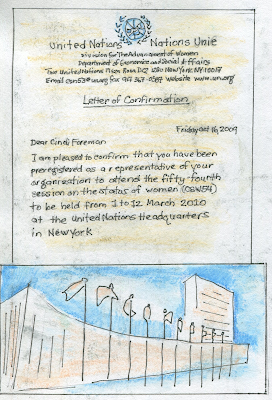 United Nations Nations Unie
Division for The Advancement of Women
Department of Economics and Social Affairs
Two United Nations Plaza New York, NY 10017
Email fax website www.un.org
Letter of Confirmation
Friday Oct 16, 2009
Dear Cindi Foreman
I am pleased to confirm that you have been
preregistered as a representative of your
organization to attend the fifty-fourth
session on the status of women (CSW54)
to be held from 1 to 12 March 2010
at the United Nations Headquarters
in New York